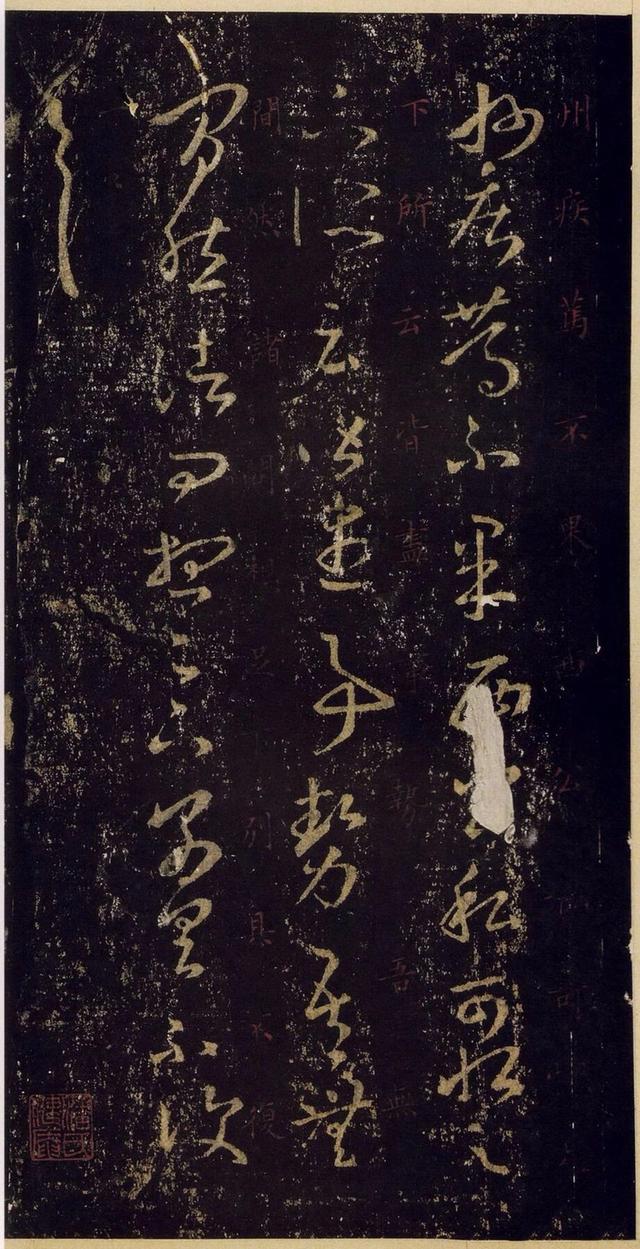 州疾篤不果西公私可恨足
州疾篤不果西公私可恨足
下所云皆盡事勢吾無
下所云皆盡事勢吾無
間然諸問想足下別具不復
間然諸問想足下別具不復
一一